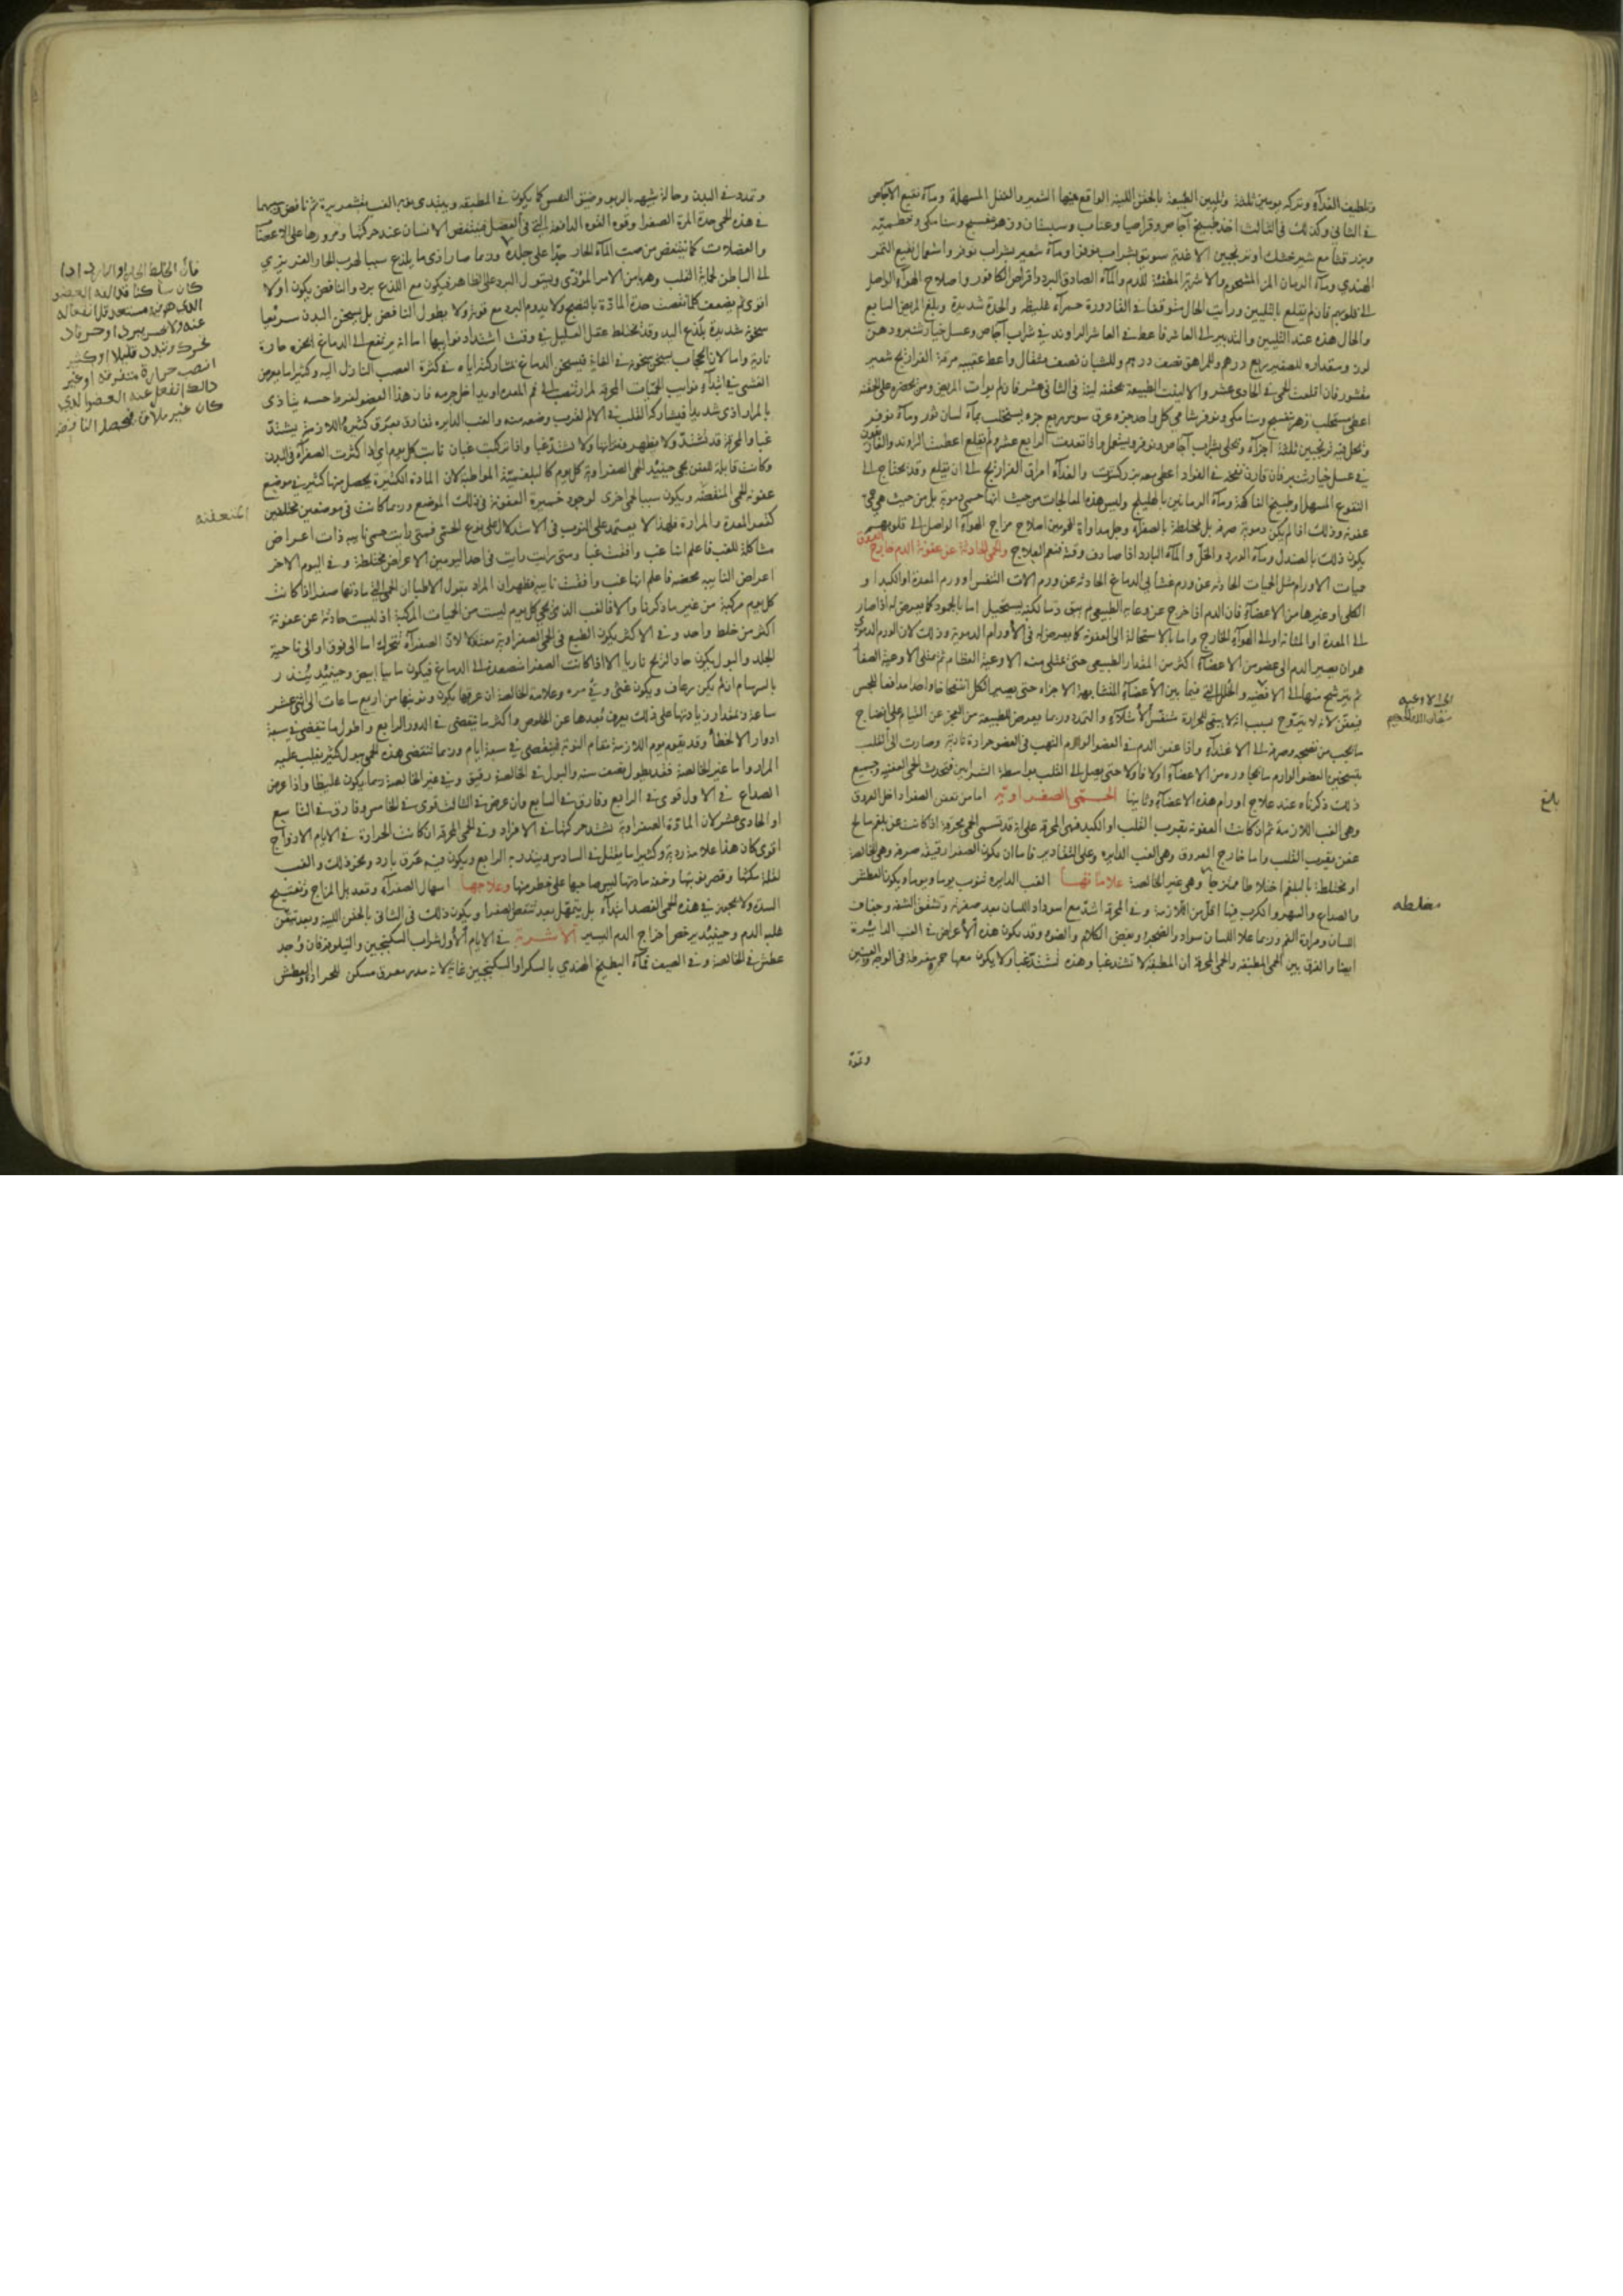 وتلطيف الغذآء وتركه يومين ثلثة وتليين الطبيعة بالحقن اللينة الواقع فيها الشعير والخل المسهلة ومآء نقيع الاجاص
في الثاني وكذلك في الثالث اخذ طبيخ آجاص وقراصيا وعناب وسبستان وزهر بنفسج وسنامكي وخطمية
وبزر قثا مع شيرخشك او ترنجبين الاغذية سويق بشراب نوفر او مآء شعير بشراب نوفر واشوال نقيع التمر
الهندي ومآء الرمان المز المشحوم والاشربة المطفئة للدم والمآء الصادق البرد واقراص الكافور واصلاح الهوآء الواصل
الى قلوبهم فان لم يقلع بالتليين ورايت الحال متوقفا في القارورة حمرآء غليظه والحدة شديدة وبلغ المريض السابع
والحال هذه عند التليين والتدبير الى العاشر فاعط في العاشر الراوند في شراب آجاص وعسل خيار شنبر ودهن
لوز ومقداره للصغير ربع درهم وللمراهق نصف درهم وللشبان نصف مثقال واعط عقيبه مرقة الفراريج شعير
مقشور فان اقلعت الحمى في الحادى عشر والا لينت الطبيعة بحقنة لينة في الثاني عشر فان لم يوات المريض ومن يحضره على الحقنة
اعطى مستحلب زهر بنفسج وسنامكي ونوفر شامي كل واحد جزء عرق سوس ربع جزء يستحلب بمآء لسان ثور ومآء نوفر
ويحل فيه ترنجبين ثلثة اجزآء ويحلى بشراب آجاص ونوفر ويستعمل واذا تعدت الرابع عشر ولم يقلع اعطيت الراوند والغاريقون
في عسل خيار شنبر فان قارن نفخه في الفواد اعطى معه بزر كشوت والغذآء امراق الفراريج الى ان يقلع وقد يحتاج الى
النقوع المسهل او طبيخ الفاكهة ومآء الرمانين بالهليلج وليس هذه المعالجات من حيث انها حمى دموية بل من حيث هي حمى
عفونة وذلك اذا لم يكن دموية صرفة بل مختلطة بالصفرآء وجل مداواة المحمومين اصلاح مزاج الهوآء الواصل الى قلوبهم
يكون ذلك بالصندل ومآء الورد والخل والمآء البارد اذا صادف وقته فنعم العلاج والحمى الحادثة عن عفونة الدم خارج العروق
حميات الاورام مثل الحميات الحادثه عن ورم غشاءى الدماغ الحادثه عن ورم الات التنفس او ورم المعدة او الكبد او
الكلى او غيرها من الاعضآء فان الدم اذا خرج عن وعائه الطبيعي لم يبق دما لكنه يستحيل اما بالجمود كما يعرض له اذا صار
الى المعدة او المثانة او الى الهوآء الخارج واما بالاستحالة الى العفونة كما يعرض له في الاورام الدموية وذلك لان الورم الدموي
هو ان يصير الدم الى عضو من الاعضآء اكثر من المقدار الطبيعي حتى تمتلى منه الاوعية العظام ثم تمتلى الاوعية الصغار
ثم يترشح منها الى الافضيه والخلل التي فيما بين الأعضآء المتشابهة الاجزاء حتى يصير الكل انتفاخا واحدا مدافعا للجس
فيعفن لانه لا يتروح بسبب انه لا يبقى للحرارة متنفس لامتلآء والتمدد وربما يعرض للطبيعة من العجز عن القيام على انضاج
ما يجب من نضجه وصرفه الى الاغتذآء واذا عفن الدم في العضو الوارم التهب في العضو حرارة نارية وصارت الى القلب
بتسخين العضو الوارم ما يجاوره من الاعضآء اولا فاولا حتى يصل الى القلب بواسطة الشرايين فتحدث الحمى العفنيه وجميع
ذلك ذكرناه عند علاج اورام هذه الاعضآء وثانيها الحمى الصفراويه اما من تعفن الصفرا داخل العروق
وهى الغب اللازمة ثم ان كانت العفونة بقرب القلب او الكبد فهى المحرقة على انه قد تسمى الحمى محرقة اذا كانت عن بلغم مالح
عفن بقرب القلب واما خارج العروق وهى الغب الدايره وعلى التقادير فاما ان يكون الصفرا رقيقة صرفة وهى الخالصة
او مختلطة بالبلغم اختلاطا ممتزجا وهى غير الخالصة علاماتها الغب الدايرة تنوب يوما ويوما ويكون العطش
والصداع والسهر والكرب فيها اقل من اللازمة وفي المحرقة اشد مع اسوداد اللسان بعد صفرته وتشقق الشفه وجفاف
اللسان ومرارة الفم وربما علا اللسان سواد والضجر وبغض الكلام والضوء وقد يكون هذه الأعراض في الغب الدايرة
ايضا والفرق بين الحمى المطبقه والحمى المحرقة ان المطبقة لا تشتد غبا وهذه تشتد غبا ولا يكون معها حمرة مفرطة في الوجه والعينين
وتمدد
مختلطه
بلغ
وتمدد في البدن وحالة شبيه بالربو وضيق النفس كما يكون في المطبقه ويبتدى نوبه الغب بقشعريرة ثم نافض
في هذه الحمى حدة المرة الصفرا وقوه القوه الدافعة التي في العضل فينتفض الانسان عند حركتها ومرورها على الاعضآ
والعضلات كما ينتفض من صب المآء الحار جدا على جلده وربما صار اذى ما يلذع سببا لهرب الحار الغريزي
الى الباطن لحماية القلب وهربا من الامر المؤذي ويستولى البرد على الظاهر فيكون مع اللذع برد والنافض يكون اولا
اقوى ثم يضعف كلما نقصت حدة المادة بالنضج ولا يدوم البرد مع قوته ولا يطول النافض بل يسخن البدن سريعا
سخونة شديدة يلذع اليد وقد يختلط عقل العليل في وقت اشتداد نوايبها اما لانه يرتفع الى الدماغ ابخره حارة
نارية واما لان الحجاب يسخن سخونة في الغاية فيسخن الدماغ بمشاركته اياه في كثرة العصب النازل اليه وكثيرا ما يعرض
الغشى في ابتدآء نوايب الحميات المحرقة لمرار تنصب الى فم المعده او يداخل جرمه فان هذا العضو لفرط حسه يتاذى
بالمرار اذى شديدا فيشاركه القلب في الالم لقربه وضعه منه والغب الدايره تفارق بعرق كثير واللازمة يشتد
غبا والمحرقة قد تشتد ولا يظهر فتراتها ولا تشتد غبا واذا تركبت غبان نابت كل يوم اى اذا كثرت الصفرآء في البدن
وكانت قابلة للعفن تجى حينئذ الحمى الصفراوية كل يوم كالبلغمية المواظبة لان المادة الكثيرة يحصل منها كثير في موضع
عفونة الحمى المنقضه ويكون سببا لحمى اخرى لوجود خميرة العفونة في ذلك الموضع وربما كانت في موضعين مختلفين
كقعر المعدة والمرارة فلهذا لا يعتمد على النوب في الاستدلال على نوع الحمى فمتى رايت حمى نايبه ذات اعراض
مشاكلة للغب فاعلم انها غب وافقت غبا ومتى رايت في احد اليومين الاعراض مختلطة وفي اليوم الاخر
اعراض النايبه محضه فاعلم انها غب وافقت نايبه فظهر ان المراد بقول الاطباء ان الحمى التي مادتها صفرا اذا كانت
كل يوم مركبة من غير ما ذكرنا والا فالغب الذى تجى كل يوم ليست من الحميات المركبة اذ ليست حادثة عن عفونة
اكثر من خلط واحد وفي الاكثر يكون الطبع في الحمى الصفراوية معتقلا لان الصفرآء تتحرك اما الى فوق او الى ناحية
الجلد والبول يكون حاد الريح ناريا الا اذا كانت الصفرا متصعدة الى الدماغ فيكون مائيا ابيض وحينئذ ينذر
بالسرسام ان لم يكن رعاف ويكون غثى وقي مره وعلامة الخالصة ان عرقها يكون ونوبتها من اربع ساعات الى اثنى عشر
ساعة ومقدار زيادتها على ذلك يعرف بعدها عن الخلوص واكثر ما ينقضى في الدور الرابع واطول ما تنقضى في سبعة
ادوار الا لخطأ وقد يقوم يوم اللازمة مقام النوبة فينقضى في سبعة ايام وربما تنقضى هذه الحمى ببول كثير يغلب عليه
المرار واما غير الخالصة فقد يطول نصف سنه والبول في الخالصة رقيق وفي غير الخالصة ربما يكون غليظا واذا عرض
الصداع في الاول قوى في الرابع وفارق في السابع وان عرض في الثالث قوى في الخامس وفارق في التاسع
او الحادى عشر لان المادة الصفراوية تشتد حركتها في الافراد وفي الحمى المحرقة ان كانت الحرارة في الايام الازواج
اقوى كان هذا علامة ردية وكثيرا ما يقتل في السادس وينذر به الرابع ويكون فيه عرق بارد ونحو ذلك والغب
لقلة مكثها وقصر نوبتها وخفة مادتها ليس صاحبها على خطر منها وعلاجها اسهال الصفرآء وتعديل المزاج وتفتيح
السدة ولا يجوز في هذه الحمى الفصد ابتدآء بل يتمهل بعد تنقص الصفرا ويكون ذلك في الثاني بالحقن اللينة وبعد تيقن
غلبه الدم وحينئذ يرخص اخراج الدم اليسير الاشربة في الايام الأول شراب السكنجبين والنيلوفر فان وجد
عطش في الخالصة وفي الصيف فمآء البطيخ الهندي بالسكر او السكنجبين غاية لانه مدر معرق مسكن للحرارة والعطش
فان الخلط الحار او البارد اذا
كان ساكنا قد الفه العضو
الذى هو فيه مستعد قل انفعاله
عنه ولا ضر ببرد او حر فاذا
تحرك وتبدد قليلا او كثير
انصب حرارة متفرقه او غير
ذالك انفعل عنه العضو الذي
كان غير ملاق فيحصل النافض
المتعفنه